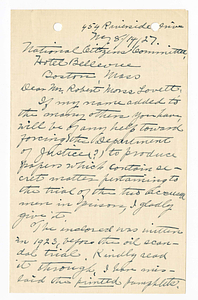 454 Riverside Drive
Aug 8/1927.
National Citizens Committee,
Hotel Bellevue
Boston, Mass
Dear Mr. Robert Morss Lovett:
If my name added to
the many others you have
will be of any help toward
forcing the Department
of Justice (?) to produce
papers which contain se-
cret matter pertaining to
the trial of the two accused
men in prison, I gladly
give it.
The enclosed was written
in 1923, before the oil scan-
dal trial. Kindly read
it through. I have mis-
laid the printed pamphlets.